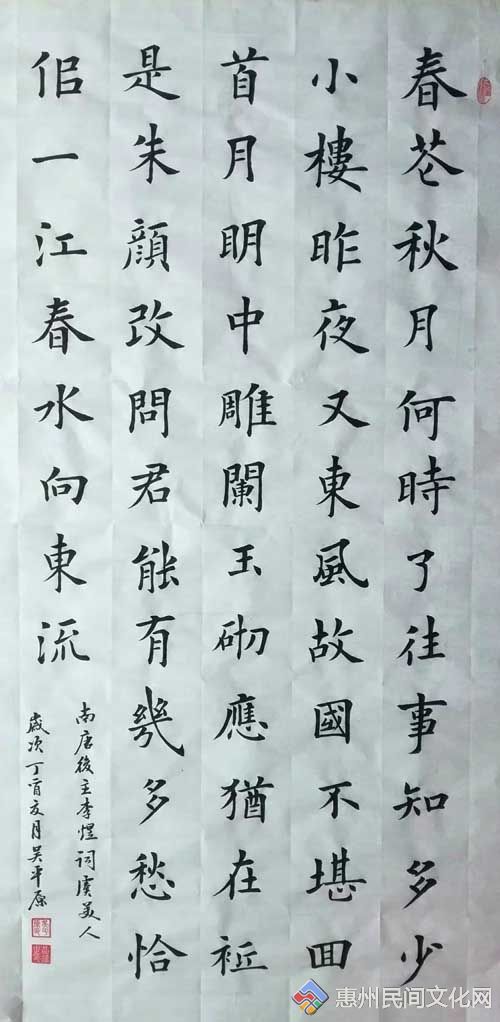 春花秋月何時了往事知多少
小樓昨夜又東風故國不堪回
首月明中雕闌玉砌應猶在祗
是朱顔改問君能有幾多愁恰
佀一江春水向東流
南唐後主李煜詞虞美人
歲次丁酉友月吴平原
惠州民间文化网